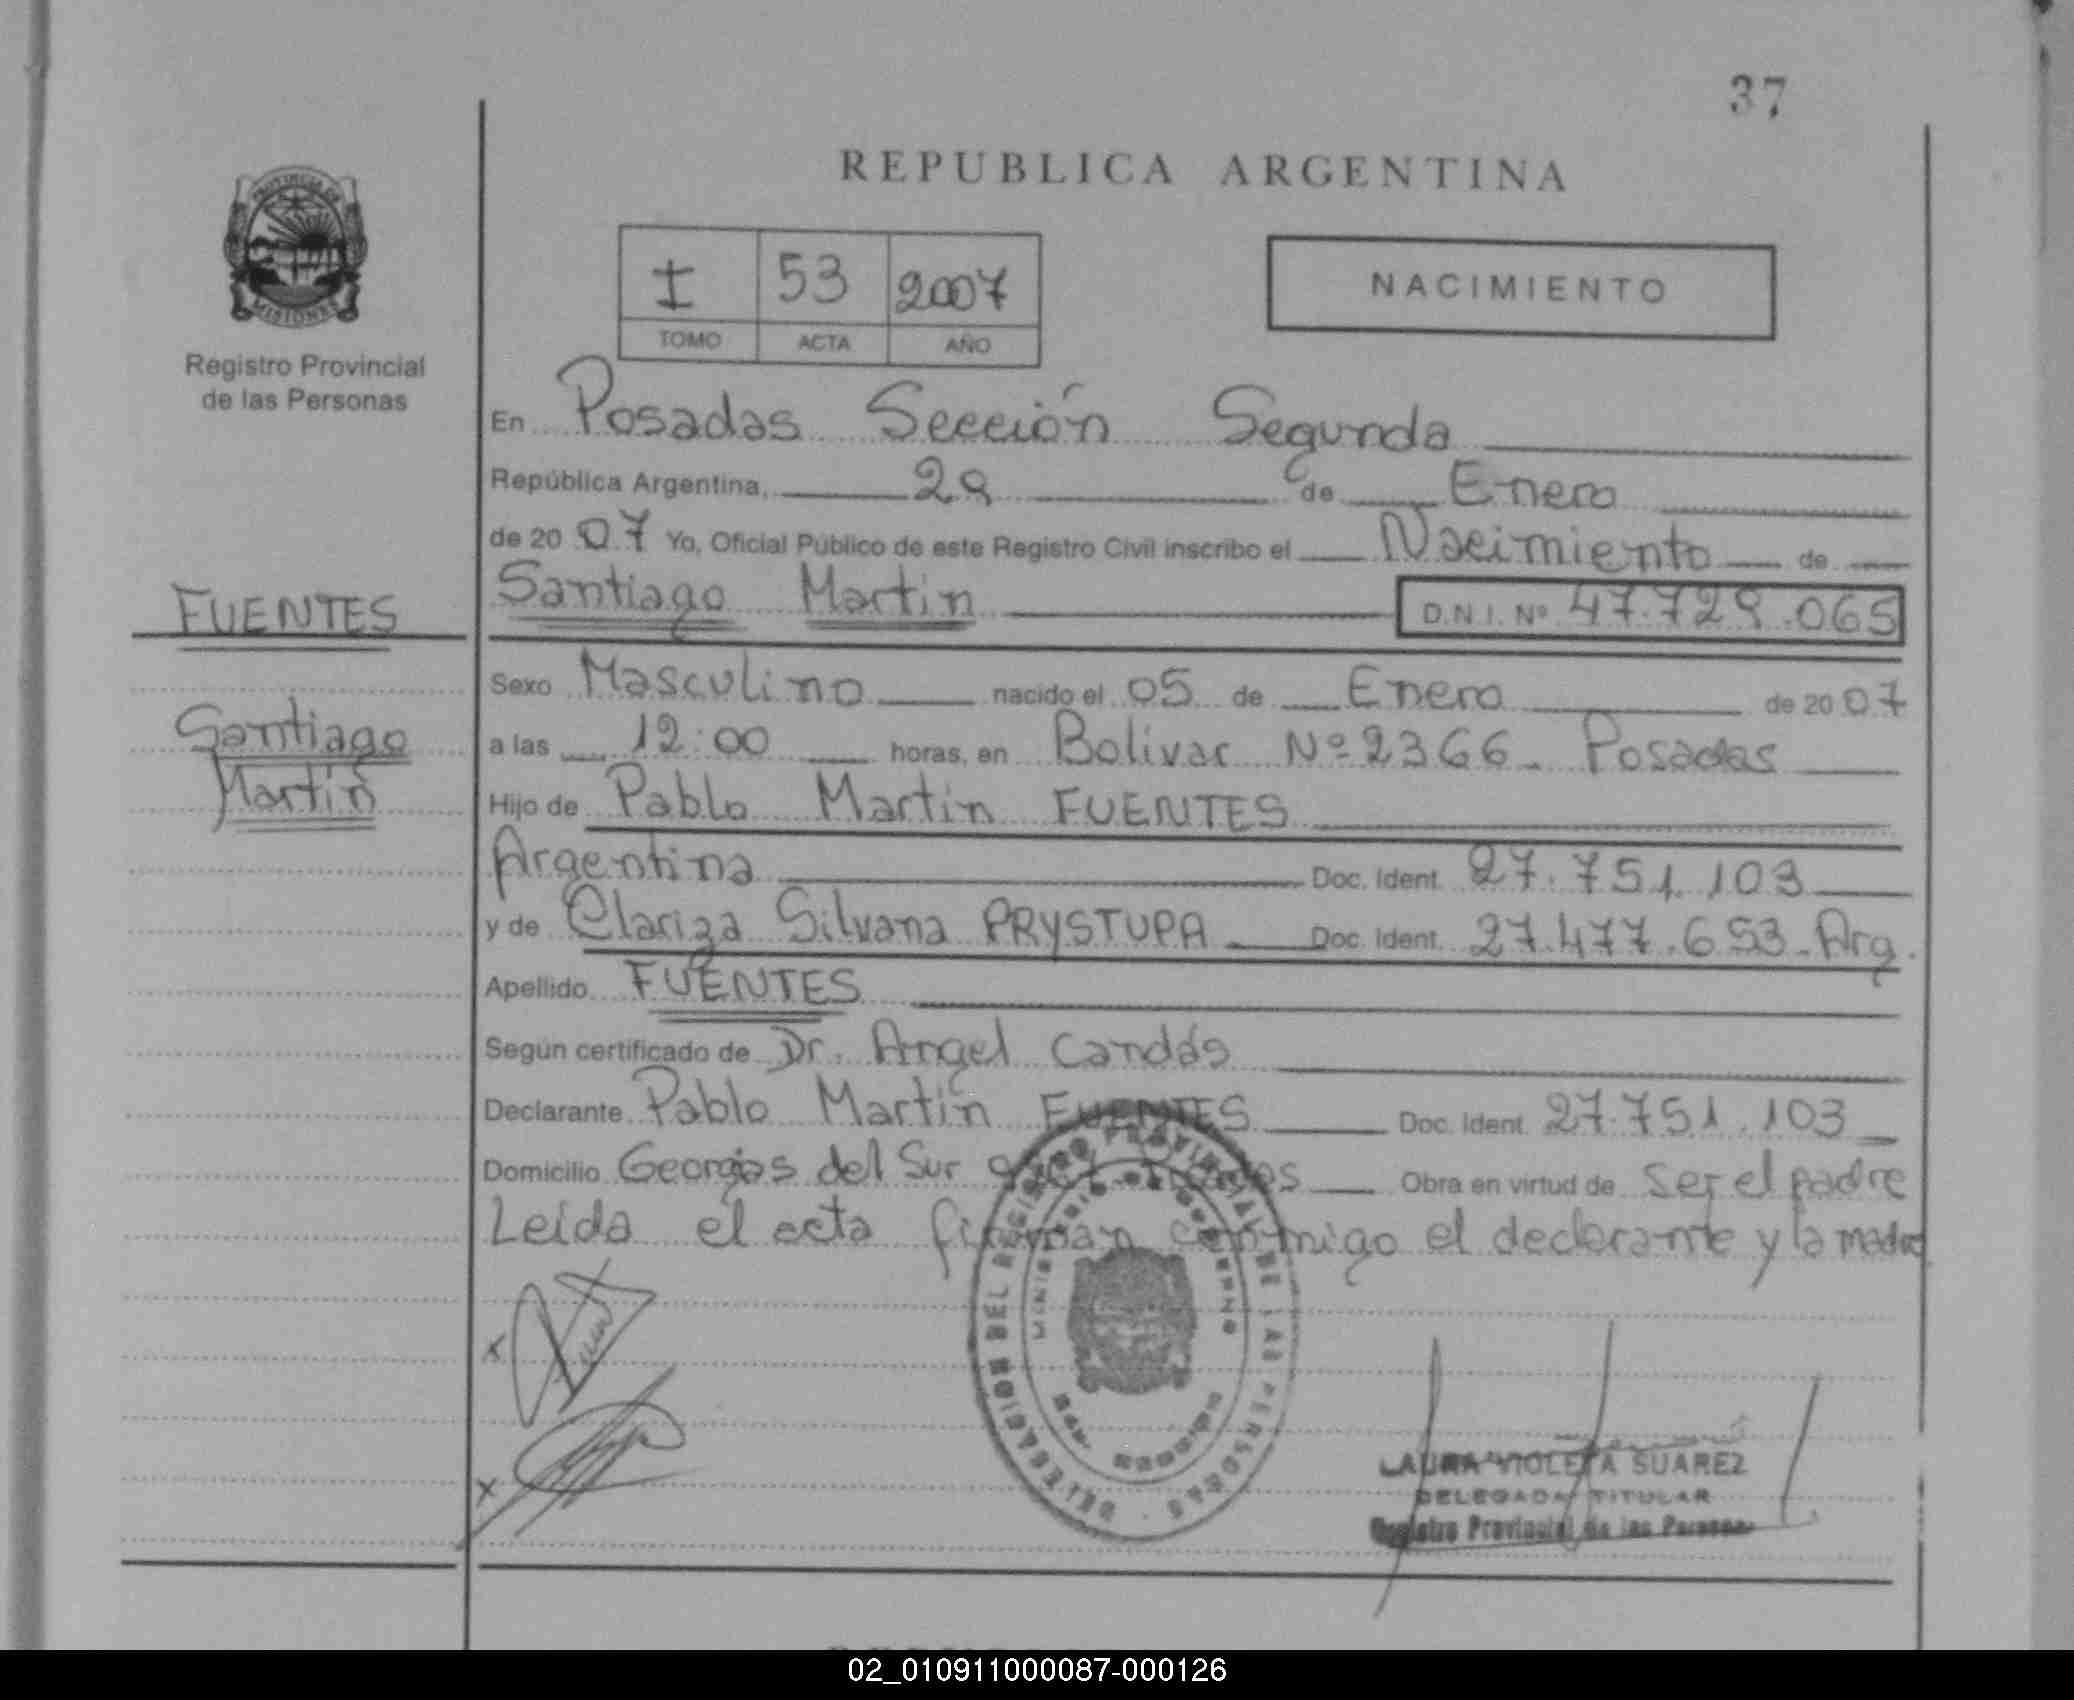 37
REPUBLICA ARGENTINA
PROVINCIA DE
MISIONES
Registro Provincial
de las Personas
I 53 2007
TOMO ACTA AÑO
NACIMIENTO
En Posadas Sección Segunda
República Argentina, 29 de Enero
de 20 07 Yo, Oficial Público de este Registro Civil inscribo el Nacimiento de
FUENTES
Santiago Martin D.N.I. Nº 47.729.065
Sexo Masculino nacido el 05 de Enero de 20 07
Santiago
a las 12:00 horas, en Bolivar Nº 2366 - Posadas
Martin
Hijo de Pablo Martin FUENTES
Argentina Doc. Ident. 27.751.103
y de Clariza Silvana PRYSTUPA Doc. Ident. 27.477.653 - Arg.
Apellido FUENTES
Según certificado de Dr. Angel Candás
Declarante Pablo Martin FUENTES Doc. Ident. 27.751.103
Domicilio Georgias del Sur Obra en virtud de ser el padre
Leída el acta firman conmigo el declarante y la madre
DELEGACION DEL REGISTRO PROVINCIAL DE LAS PERSONAS
MINISTERIO DE GOBIERNO
x
x
LAURA VIOLETA SUAREZ
DELEGADA TITULAR
Registro Provincial de las Personas
02_010911000087-000126